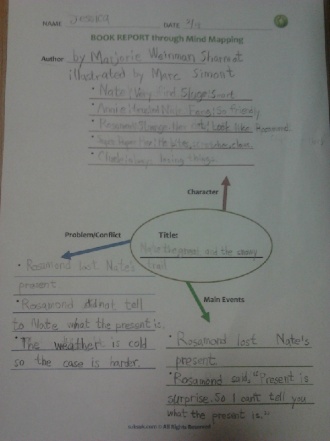 NAME Jessica DATE 3/9
BOOK REPORT through Mind Mapping
Author by Marjorie Weinman Sharmat
illustrated by Marc Simont
• Nate: Very find Sludge: Smart
• Annie: friendly
• Rosamond: Strange Her cats: Look like Rosamond
• bites
• Claude: always losing things.
Character
Problem/Conflict
Title:
Nate the great and the snowy trail
• Rosamond lost Nate's
present
• Rosamond did not tell
to Nate what the present is.
• The weather is cold
so the case is harder.
Main Events
• Rosamond lost Nate's
present
• Rosamond said, "Present is
surprise. So I can't tell you
what the present is."
All Rights Reserved